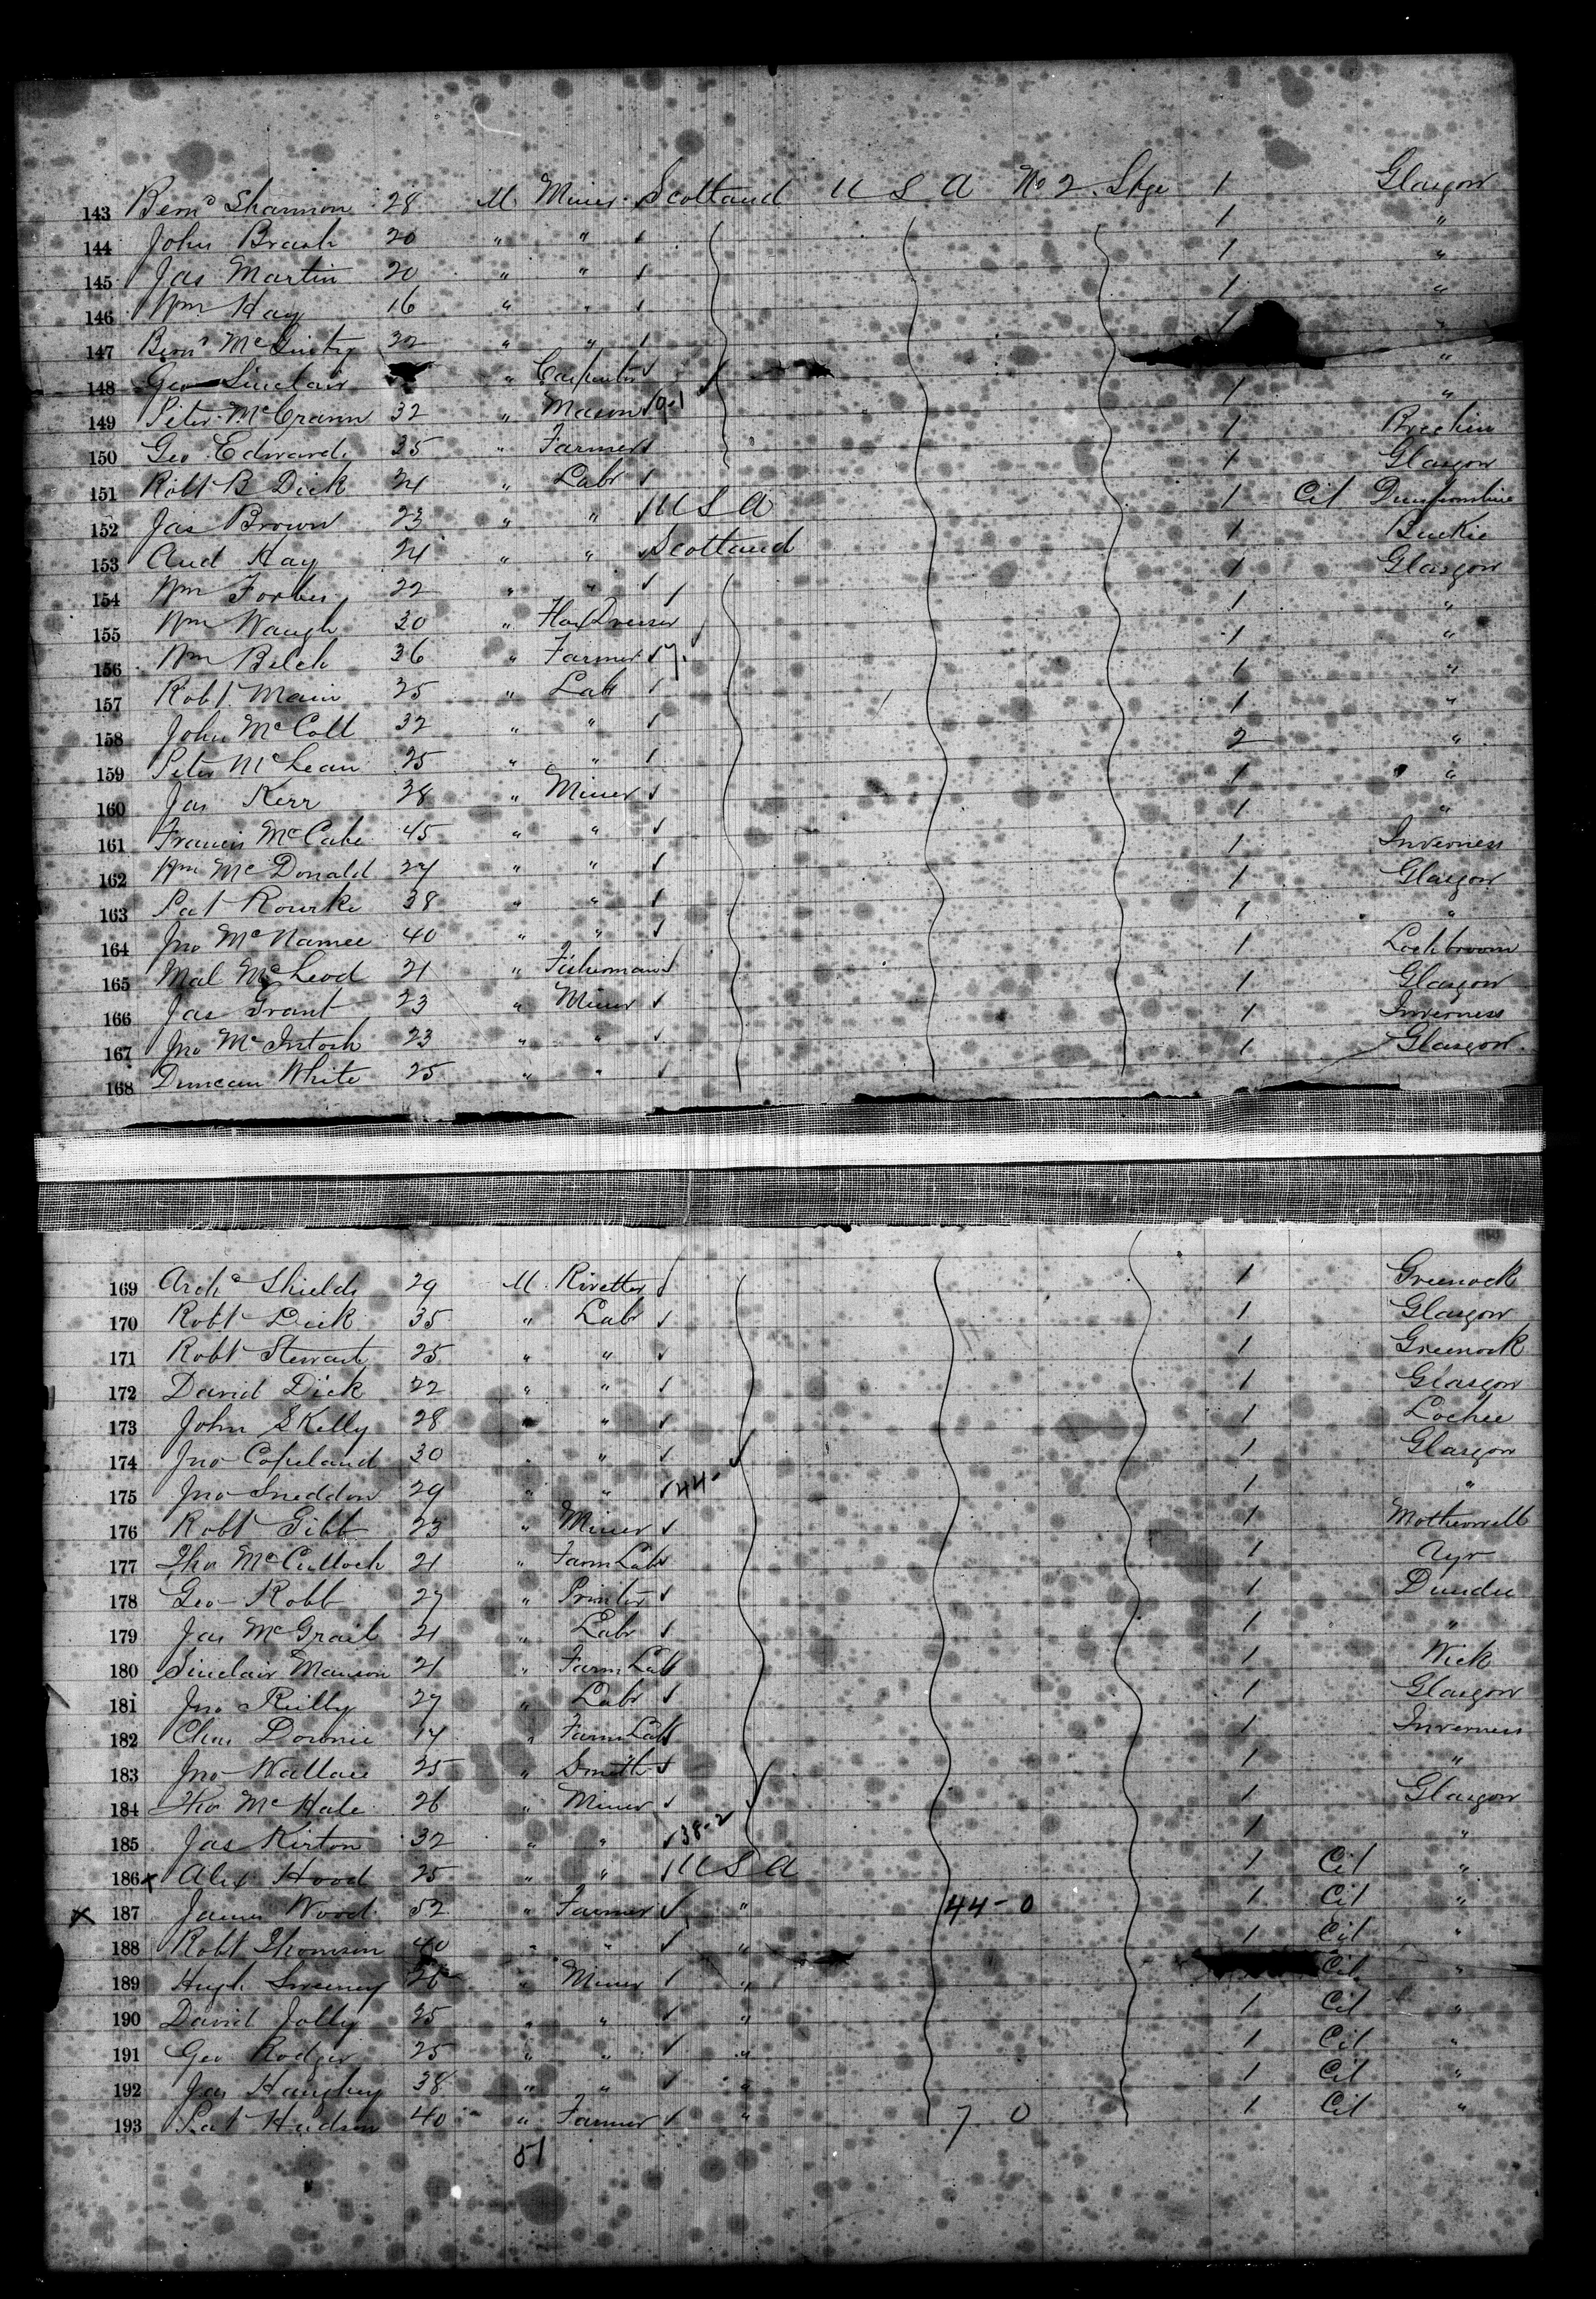 143 Bernd Shannon 28 M. Miner Scotland U S A No 2 Stge 1 Glasgow
144 John Brash 20 " " 1 "
145 Jas Martin 20 " " 1 "
146 Wm Hay 16 " " 1 "
147 Bernd McGinty 32 " " 1 "
148 Geo Sinclair " Carpenter "
149 Peter McCrann 32 " Mason 1 "
150 Geo Edwards 35 " Farmer 1 Brechin
151 Robt B Dick 24 " Labr 1 Glasgow
152 Jas Brown 23 " " U S A 1 Cit Dunfermline
153 And Hay 24 " " Scotland 1 Buckie
154 Wm Forbes 22 " " 1 Glasgow
155 Wm Waugh 30 " Dresser 1 "
156 Wm Belch 36 " Farmer 1 "
157 Robt Main 25 " Labr 1 "
158 John McColl 32 " " 1 "
159 Peter McLean 25 " " 2 "
160 Jas Kerr 38 " Miner 1 "
161 Francis McCabe 45 " " 1 "
162 Wm McDonald 27 " " 1 Inverness
163 Pat Rourke 38 " " 1 Glasgow
164 Jno McNamee 40 " " 1 "
165 Mal McLeod 21 " Fisherman 1 Lochbroom
166 Jas Grant 23 " Miner 1 Glasgow
167 Jno McIntosh 23 " " 1 Inverness
168 Duncan White 25 " " 1 Glasgow
169 Archd Shields 29 M. Rivetter 1 Greenock
170 Robt Dick 35 " Labr 1 Glasgow
171 Robt Stewart 25 " " 1 Greenock
172 David Dick 22 " " 1 Glasgow
173 John Skelly 28 " " 1 Lochee
174 Jno Copeland 30 " " 1 Glasgow
175 Jno Sneddon 29 " " 44- 1 "
176 Robt Gibb 23 " Miner 1 Motherwell
177 Tho McCulloch 21 " Farm Labr 1 Ayr
178 Geo Robb 27 " Printer 1 Dundee
179 Jas McGrail 21 " Labr 1 "
180 Sinclair Manson 21 " Farm Labr 1 Wick
181 Jno Reilly 27 " Labr 1 Glasgow
182 Chas Downie 17 " Farm Labr 1 Inverness
183 Jno Wallace 25 " Smith 1 "
184 Tho McHale 26 " Miner 1 Glasgow
185 Jas Kirton 32 " " 38-2 1 "
186 x Alex Hood 25 " " U S A 1 Cit "
x 187 James Wood 52 " Farmer " 44-0 1 Cit "
188 Robt Thomson 40 " " " 1 Cit "
189 Hugh Sweeney 26 " Miner " Cit "
190 David Jolly 35 " " " 1 Cit "
191 Geo Rodger 25 " " " 1 Cit "
192 Jas Haughey 38 " " " 1 Cit "
193 Pat Hudson 40 " Farmer " 7 0 1 Cit "
51